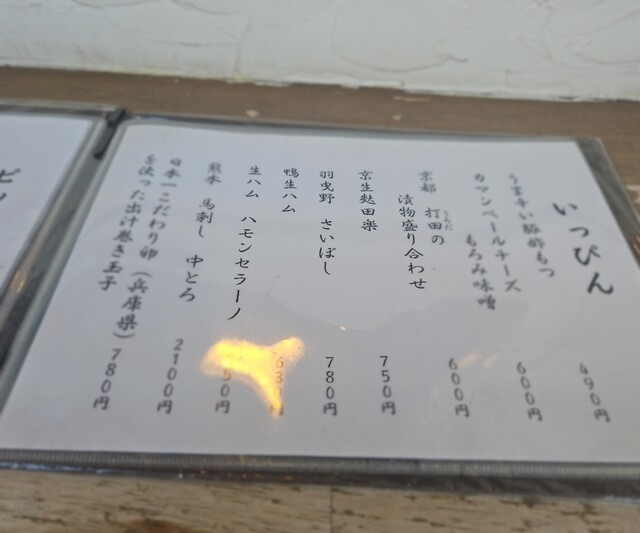 いっぴん
うま辛い豚酢もつ
490円
カマンベールチーズ
もろみ味噌
600円
京都 打田の
うちだ
漬物盛り合わせ
600円
京生麩田楽
750円
羽曳野 さいぼし
780円
鴨生ハム
生ハム ハモンセラーノ
50円
熊本 馬刺し 中とろ
2100円
日本一こだわり卵(兵庫県)
を使った出汁巻き玉子
780円
ピ